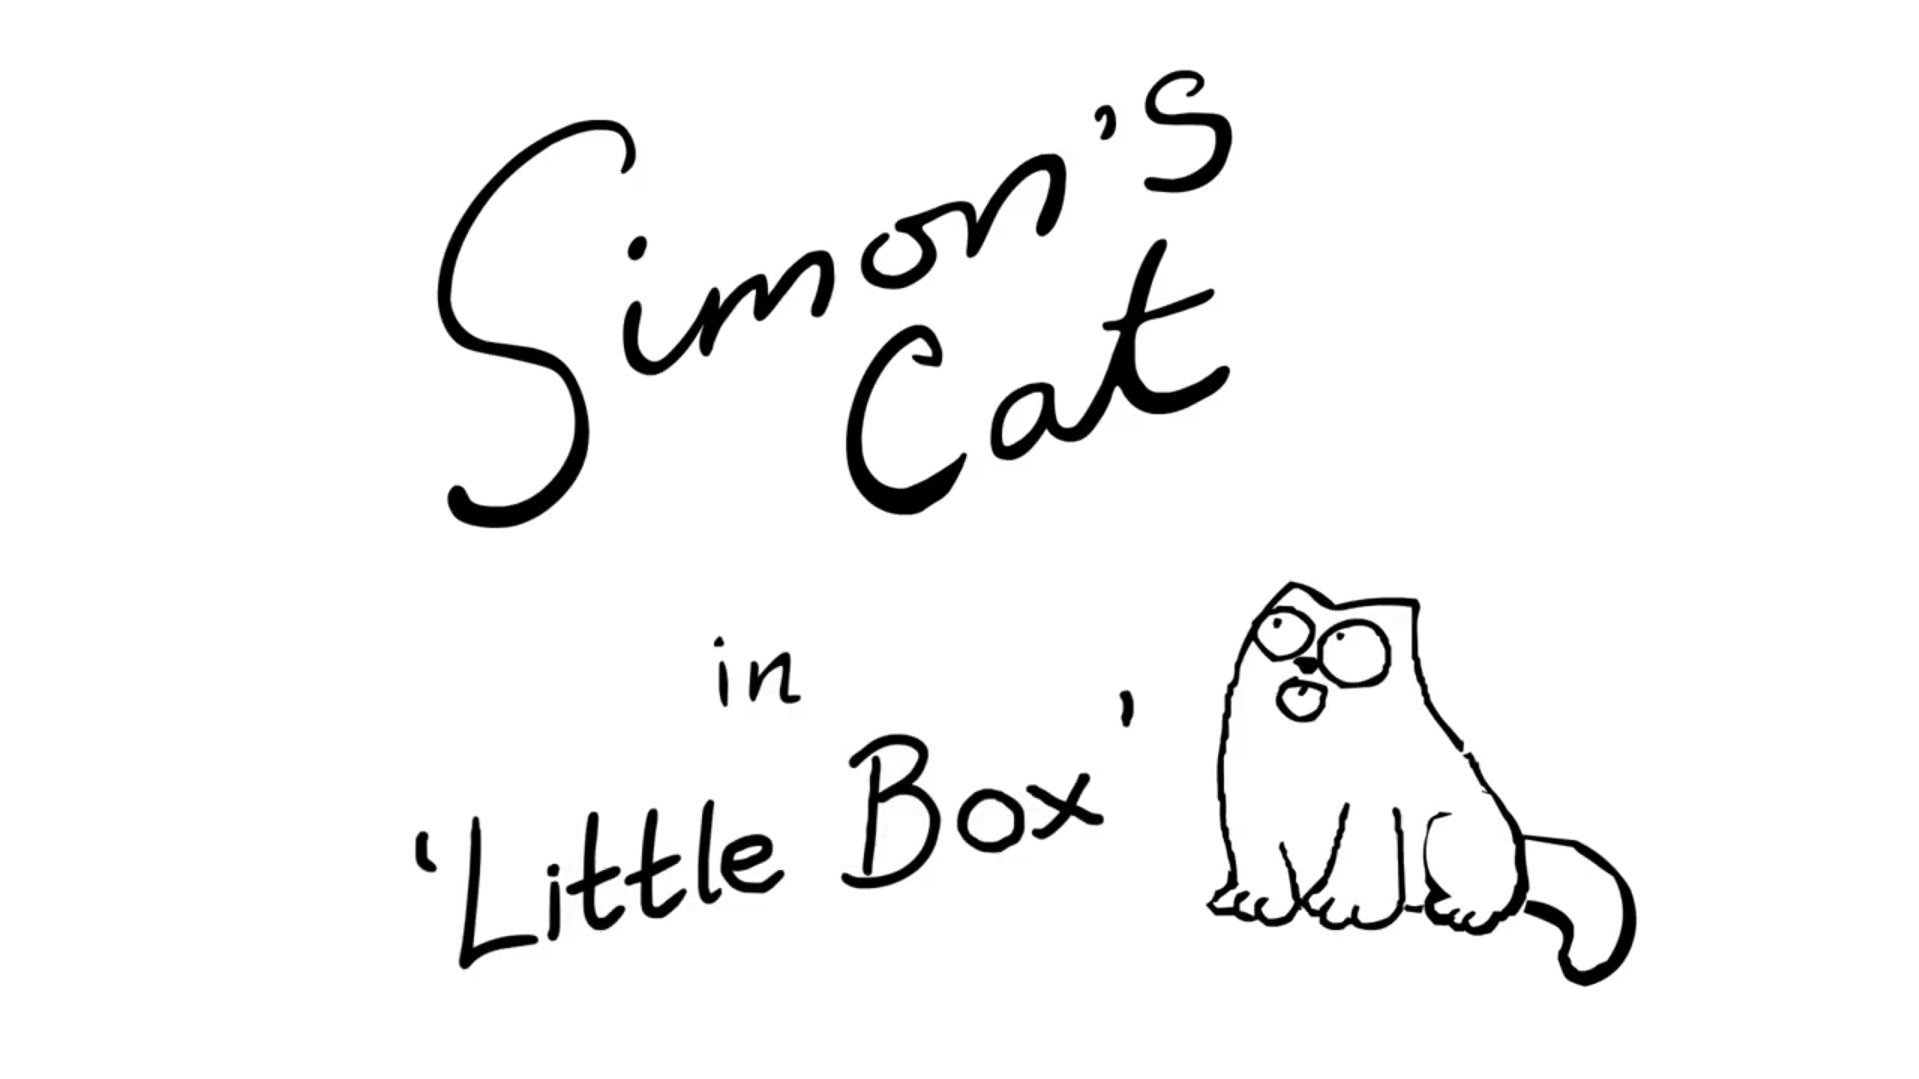 Simon's
Cat
in
'Little Box'